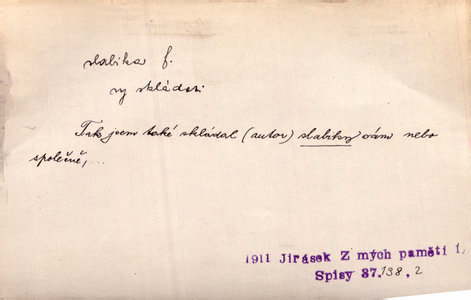 slabika f.
ny skládati
Tak jsem také skládal (autor) slabiky sám nebo
společně,...
1911 Jirásek Z mých pamětí 1.
Spisy 37.138,2